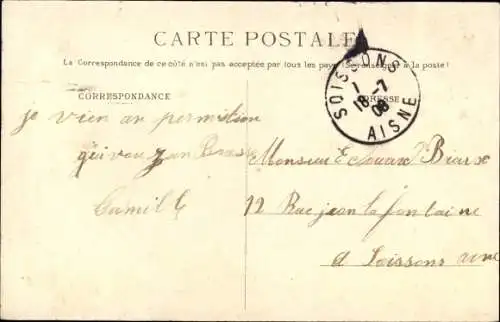 CARTE POSTALE
La Correspondance de ce côté n'est pas acceptée par tous les pays (Se renseigner à la poste)
CORRESPONDANCE
ADRESSE
SOISSONS
1
18 -7
08
AISNE
je vien an permition
Camille
Monsieur Edouard
12 Rue jean la fontaine
a Soissons aisne